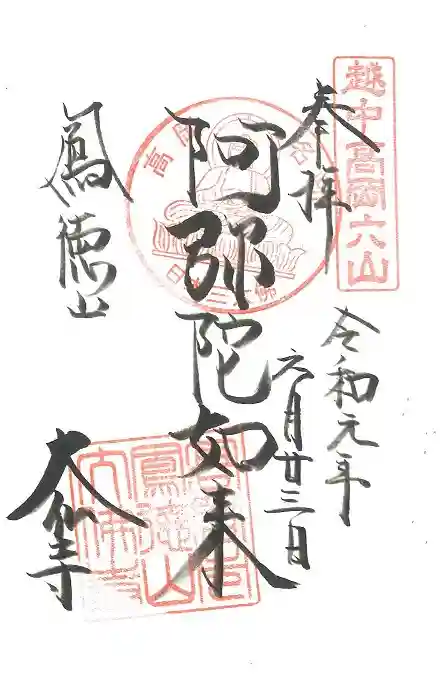 越中高岡六山
奉拝
令和元年
六月廿三日
阿弥陀如来
鳳徳山
大仏寺
鳳徳山
大佛寺